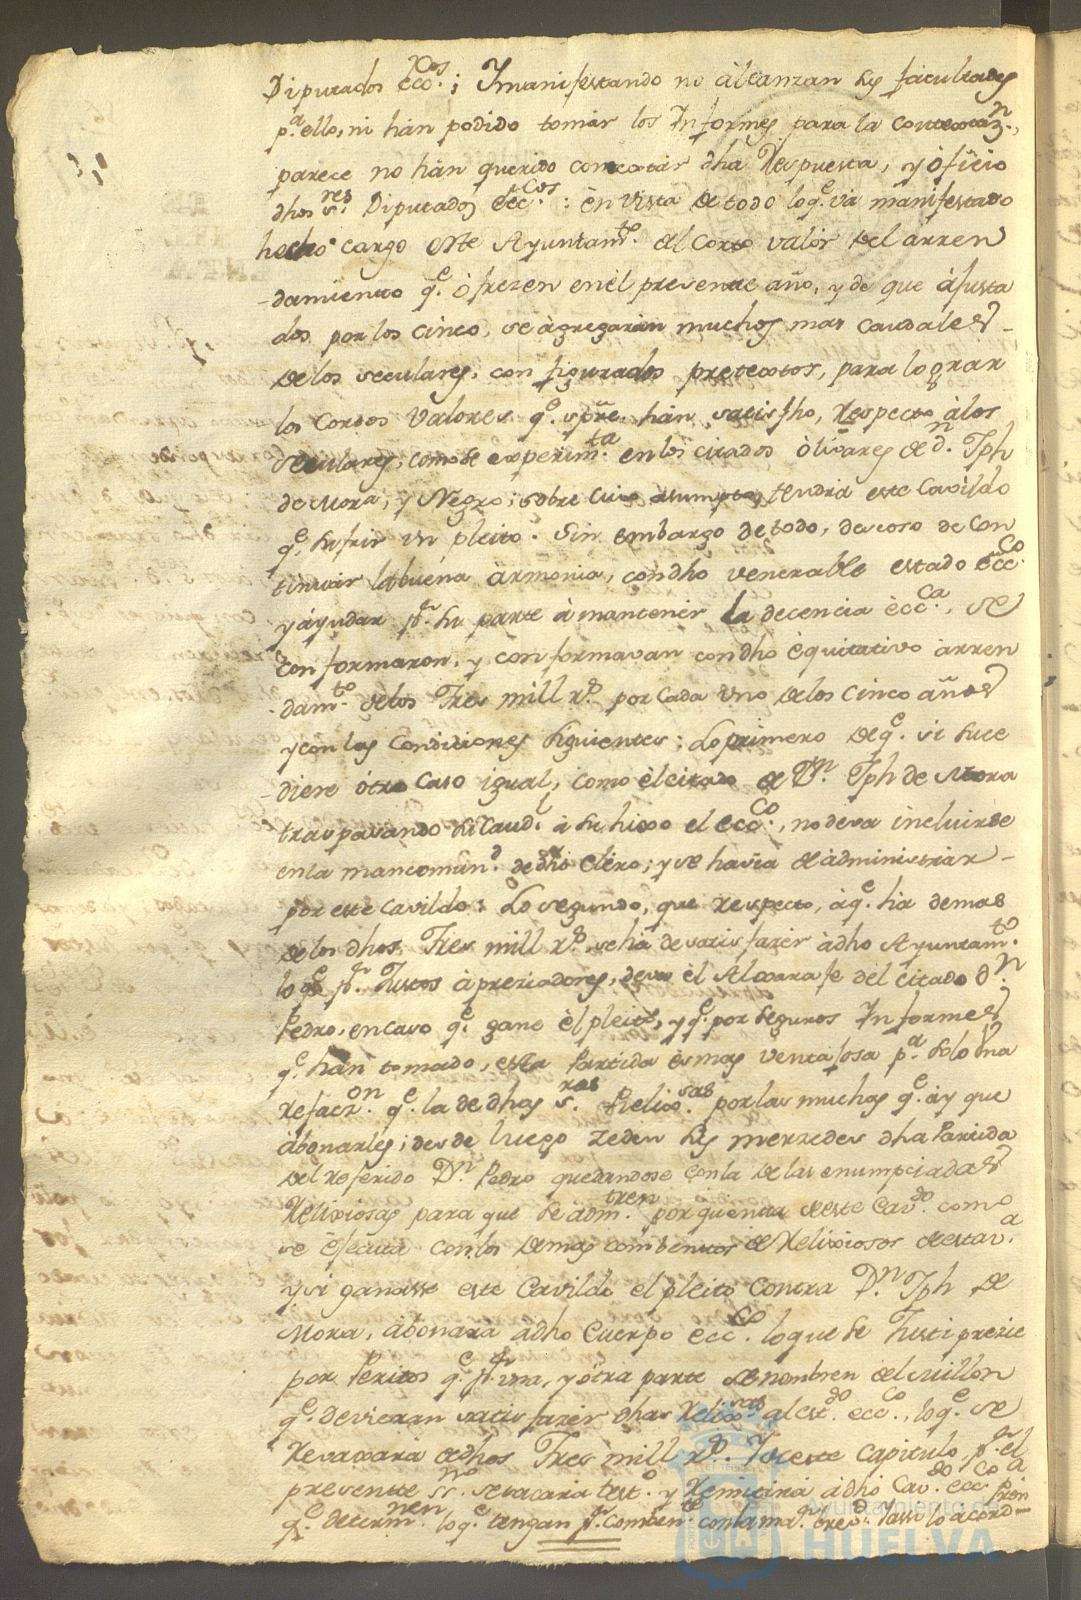 Diputados ecc.cos; Ymanifestando no álcanzan sus facultades
p.a ello, ni hán podido tomár los Ynformes para la contextaz.n,
parece no hán querido contextár dha Respuesta, y ófizio
dhos s.res Diputados ecc.cos: èn vista de todo lo q.e vá manifestado
hecho cargo este Ayuntam.to del corto valór del arren
damiento q.e ófrezen en èl presente año, y de que ájusta
dos por los cinco, se àgregarán muchos mas caudales
de los seculares, con figurados pretextos, para lográr
los cortos valores q.e spre. hán satisfho, Respecto álos
seculares, como se experim.ta en los citados òlivares de d.n Jph
de Mora, y Negro; sobre cuio asumpto, tendria este Cavildo
q.e sufrir un pleito. Sin embargo de todo, deseoso de Con
tinuár la buena àrmonia, con dho venerable estado ecc.co
y àyudar p.r su parte à mantenér la decencia ècc.ca, se
conformaron, y conformavan con dho èquitativo àrren
dam.to de los Tres mill r.s por cada uno de los cinco años
y con las Condiciones siguientes: Lo primero de q.e si suce
diere ótro caso igual, como èl citado de D.n Jph de Mora
traspasando su Caud.l à su hixo el ecc.co, no deva incluirse
en la mancomun.d de dho Cléro; y se havia de àdministrár
por este Cavildo: Lo segundo, que Respecto, à q.e há demas
de los dhos Tres mill r.s se há de satisfazér àdho Ayuntam.to
lo q.e p.r Justos àpreziadores, deva èl Aloxarafe del citado d.n
Pedro, en caso q.e gane èl pleito, y q.e por seguros Ynformes
q.e hán tomado, esta Partida ès mas ventajosa p.a solo una
Refacz.on q.e la de dhas s.ras Relixi.sas por las muchas q.e ay que
abonarles; desde luego zeden sus merzedes dha Partida
del referido D.n Pedro quedandose con la de las enumpciadas
Relixiosas para que se àdm.tren por quenta de este Cav.do como
se èfectúa con los demas combentos de Relixiosos de esta v.a
y si ganasse este Cavildo el pleito contra D.n Jph de
Mora, àbonará àdho Cuerpo ecc.co lo que se Justiprezie
por Peritos q.e p.r una, y òtra parte se nombren del Millon
q.e devieran satisfazér dhas Relixi.sas al est.do ecc.co, lo q.e se
Revaxará de dhos Tres mill r.s Y de este Capitulo, p.r el
presentte ss.no se sacará test.o y Remitirá àdho Cav.do ecc.co
q.e determ.nen lo q.e tengan p.r combén.te con la ma.r brev.d Y assi lo acord
Ayuntamiento de
HUELVA